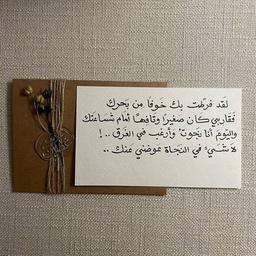 لقد فرّطت بك خوفًا من بحرك
فقاربي كان صغيرًا وتافهًا أمام شساعتك
واليوم أنا نجوتُ وأرغب في الغرق .. !
لا شيءَ في النجاة عوضني عنك ..